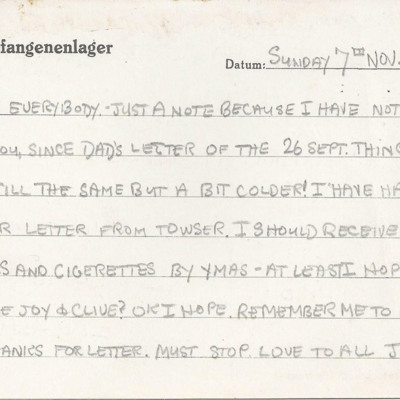 fangenenlager
Datum: SUNDAY 7TH NOV.
EVERYBODY. - JUST A NOTE BECAUSE I HAVE NOT
OU, SINCE DAD'S LETTER OF THE 26 SEPT. THING
ILL THE SAME BUT A BIT COLDER! I'HAVE HA
R LETTER FROM TOWSER. I SHOULD RECEIVE
S AND CIGERETTES BY XMAS - AT LEAST I HOP
E JOY & CLIVE? OK I HOPE. REMEMBER ME TO
ANKS FOR LETTER. MUST STOP. LOVE TO ALL J